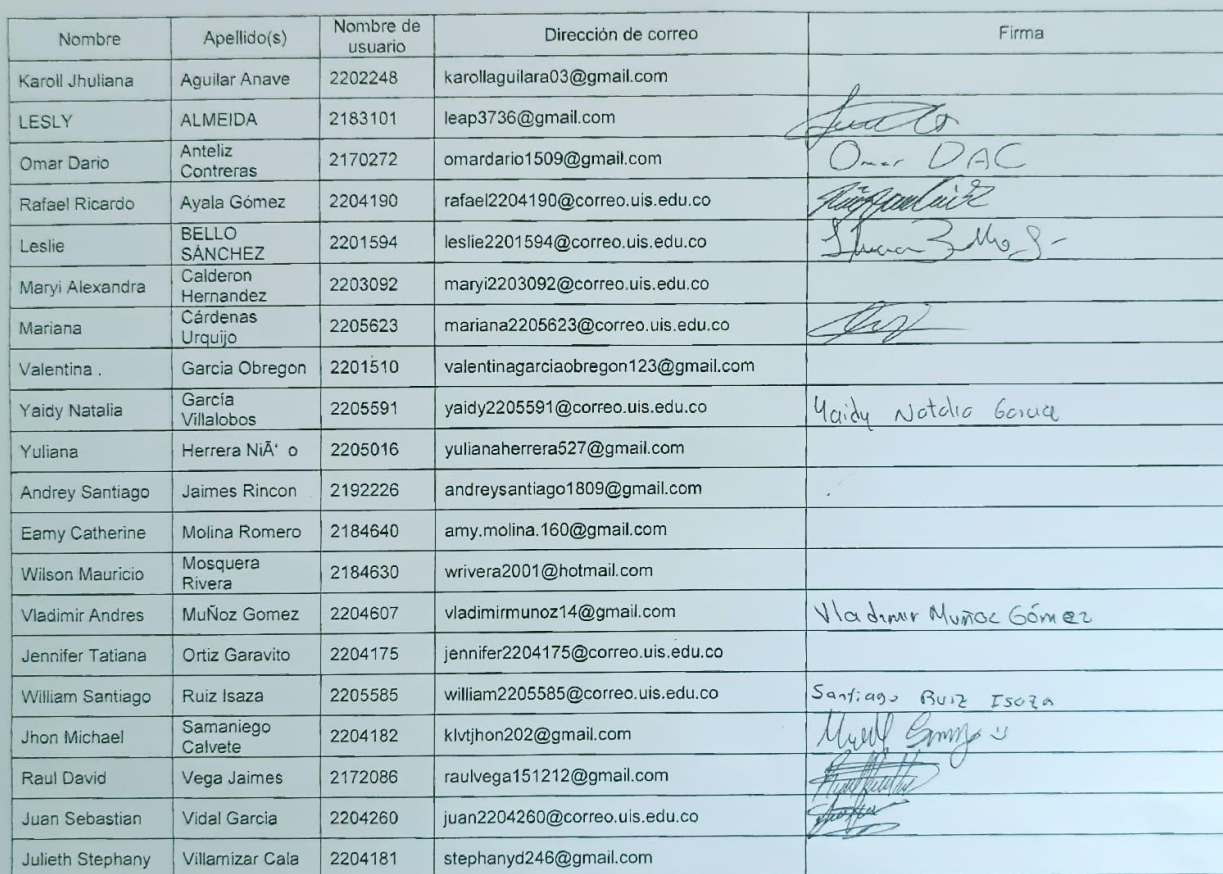 Nombre Apellido(s) Nombre de usuario Dirección de correo Firma
Karoll Jhuliana Aguilar Anave 2202248 karollaguilara03@gmail.com
LESLY ALMEIDA 2183101 leap3736@gmail.com
Omar Dario Anteliz Contreras 2170272 omardario1509@gmail.com Omar DAC
Rafael Ricardo Ayala Gómez 2204190 rafael2204190@correo.uis.edu.co
Leslie BELLO SÁNCHEZ 2201594 leslie2201594@correo.uis.edu.co
Maryi Alexandra Calderon Hernandez 2203092 maryi2203092@correo.uis.edu.co
Mariana Cárdenas Urquijo 2205623 mariana2205623@correo.uis.edu.co
Valentina . Garcia Obregon 2201510 valentinagarciaobregon123@gmail.com
Yaidy Natalia García Villalobos 2205591 yaidy2205591@correo.uis.edu.co Yaidy Natalia Garcia
Yuliana Herrera NiÃ‘ o 2205016 yulianaherrera527@gmail.com
Andrey Santiago Jaimes Rincon 2192226 andreysantiago1809@gmail.com
Eamy Catherine Molina Romero 2184640 amy.molina.160@gmail.com
Wilson Mauricio Mosquera Rivera 2184630 wrivera2001@hotmail.com
Vladimir Andres MuÑoz Gomez 2204607 vladimirmunoz14@gmail.com Vladimir Muñoz Gómez
Jennifer Tatiana Ortiz Garavito 2204175 jennifer2204175@correo.uis.edu.co
William Santiago Ruiz Isaza 2205585 william2205585@correo.uis.edu.co Santiago Ruiz Isaza
Jhon Michael Samaniego Calvete 2204182 klvtjhon202@gmail.com
Raul David Vega Jaimes 2172086 raulvega151212@gmail.com
Juan Sebastian Vidal Garcia 2204260 juan2204260@correo.uis.edu.co
Julieth Stephany Villamizar Cala 2204181 stephanyd246@gmail.com